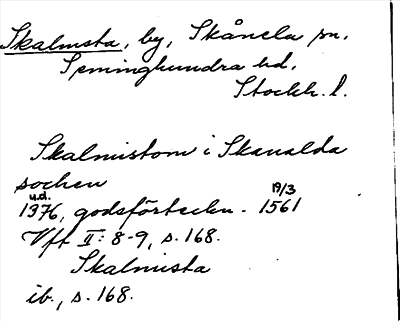 Skalmsta, by, Skånela sn,
Seminghundra hd,
Stockh. l.
Skalmistom i Skanalda
sochen
u.d. 19/3
1376, godsförteckn. 1561
Vft II: 8-9, s. 168.
Skalmista
ib., s. 168.